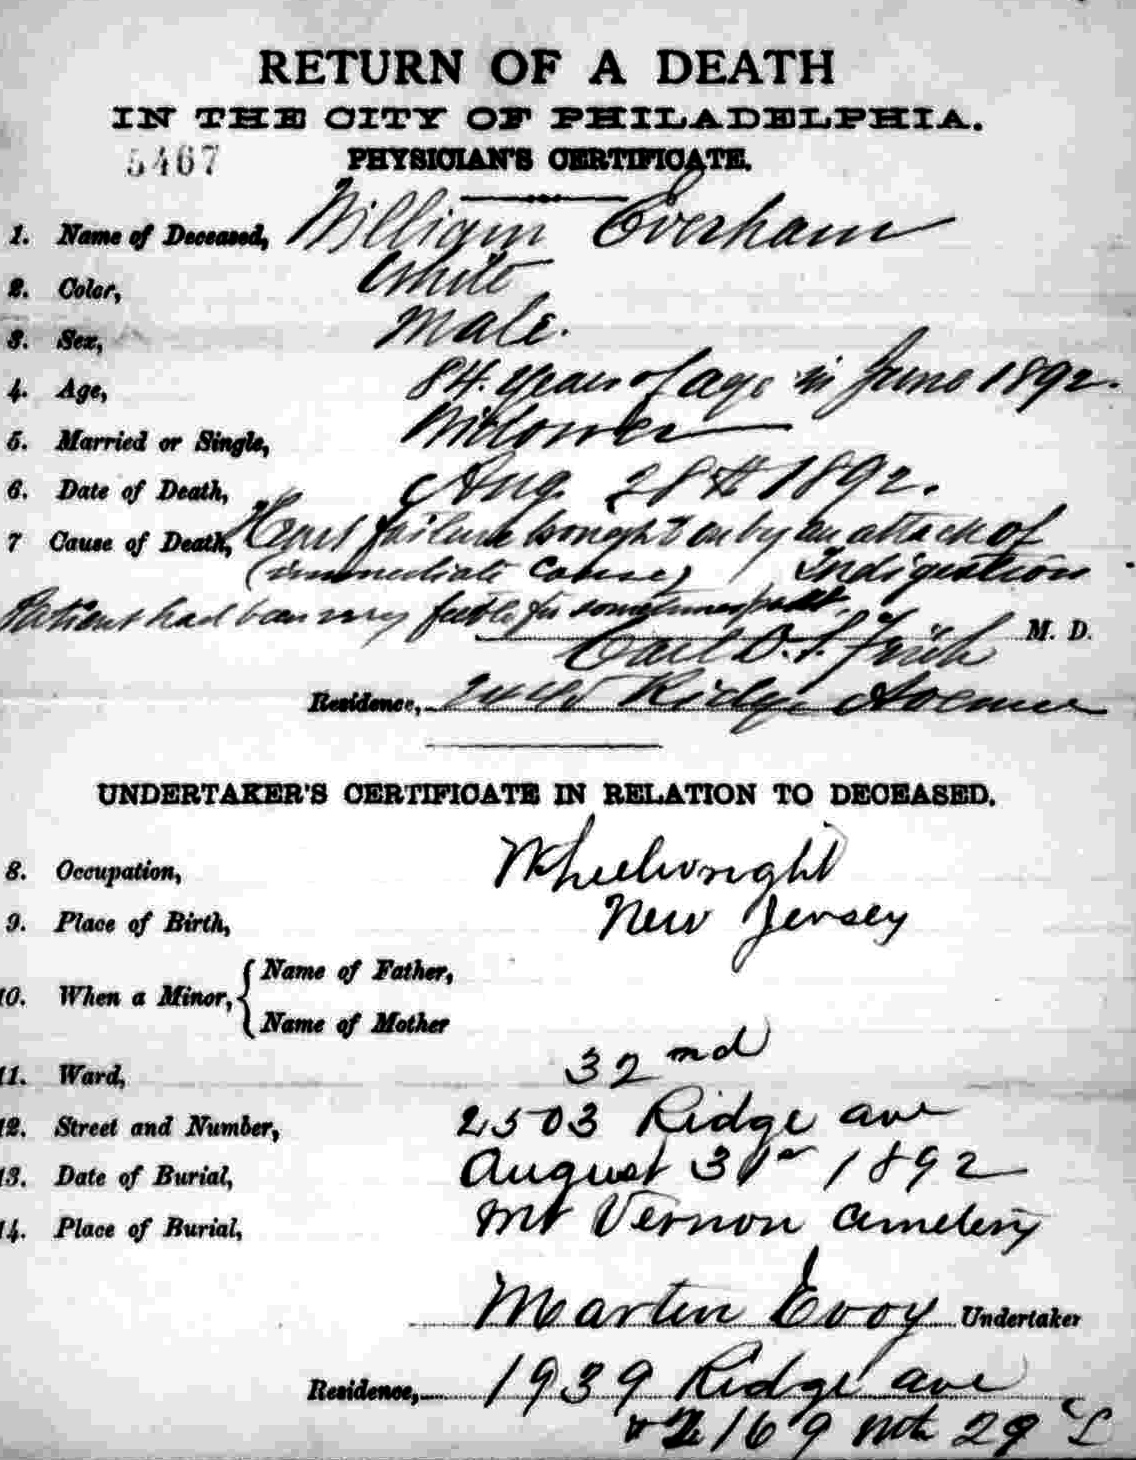 RETURN OF A DEATH
IN THE CITY OF PHILADELPHIA.
5467 PHYSICIAN'S CERTIFICATE.
1. Name of Deceased, William Everham
2. Color, White
3. Sex, Male.
4. Age, 84. years of age in June 1892.
5. Married or Single, Widower
6. Date of Death, Aug. 28th 1892.
7 Cause of Death, Heart failure brought on by an attack of
(immediate cause) Indigestion
Patient had been very feeble for sometime past.
Carl D. S. M. D.
Residence, Ridge Avenue
UNDERTAKER'S CERTIFICATE IN RELATION TO DECEASED.
8. Occupation, Wheelwright
9. Place of Birth, New Jersey
10. When a Minor, { Name of Father,
Name of Mother
11. Ward, 32nd
12. Street and Number, 2503 Ridge ave
13. Date of Burial, August 31st 1892
14. Place of Burial, Mt Vernon Cemetery
Martin Evoy Undertaker
Residence, 1939 Ridge ave
169 29